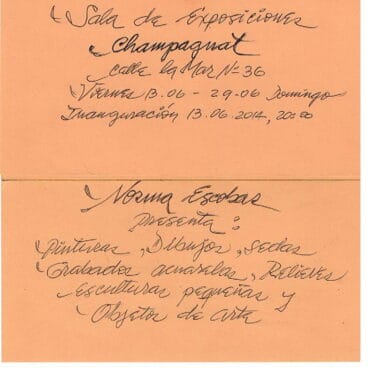 Sala de Exposiciones
Champagnat
calle la Mar Nº 36
Viernes 13.06 - 29-06 Domingo
Inauguración 13.06.2014, 20:00
Norma Escobar
presenta:
Pinturas, Dibujos, sedas
Grabados acuarelas, Relieves
Esculturas pequeñas y
Objetos de arte